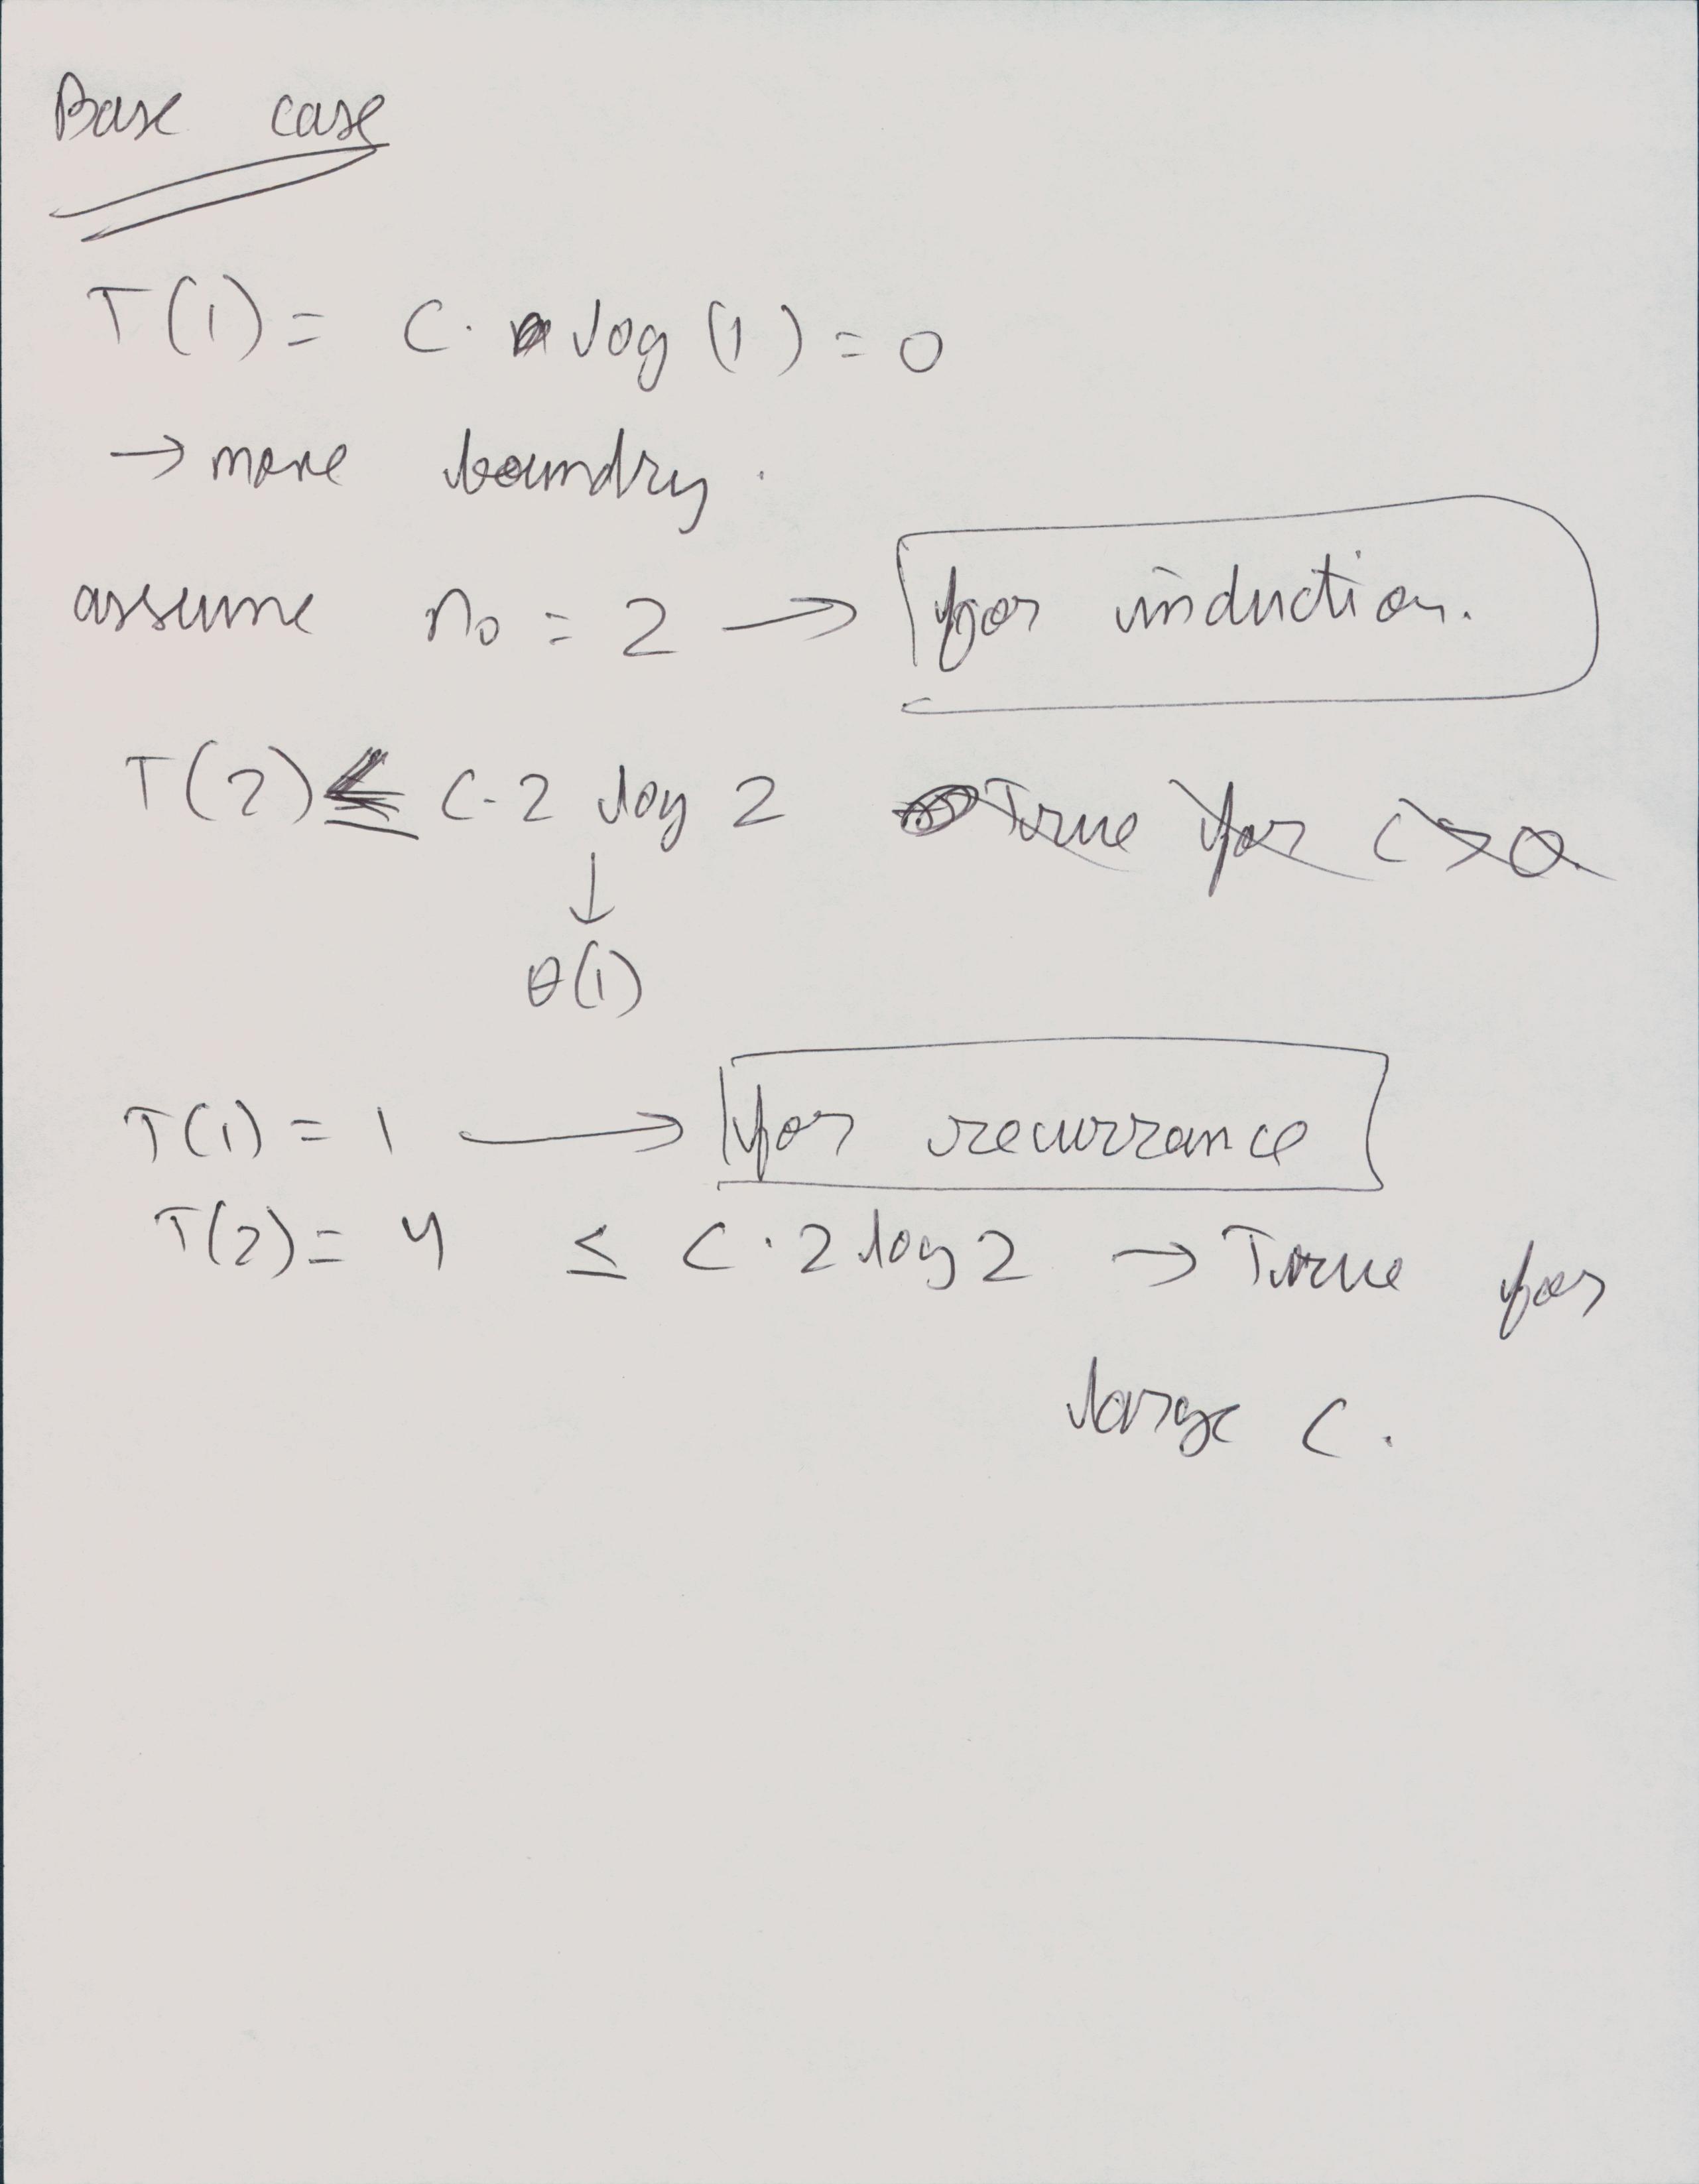 Base case
T(1) = C. log (1) = 0
→ move boundry.
assume n₀ = 2 → for induction.
T(2) ≤ C.2 log 2 True for C>0.
↓
θ(1)
T(1) = 1 → for recurrance
T(2) = 4 ≤ C.2 log 2 → True for
large C.